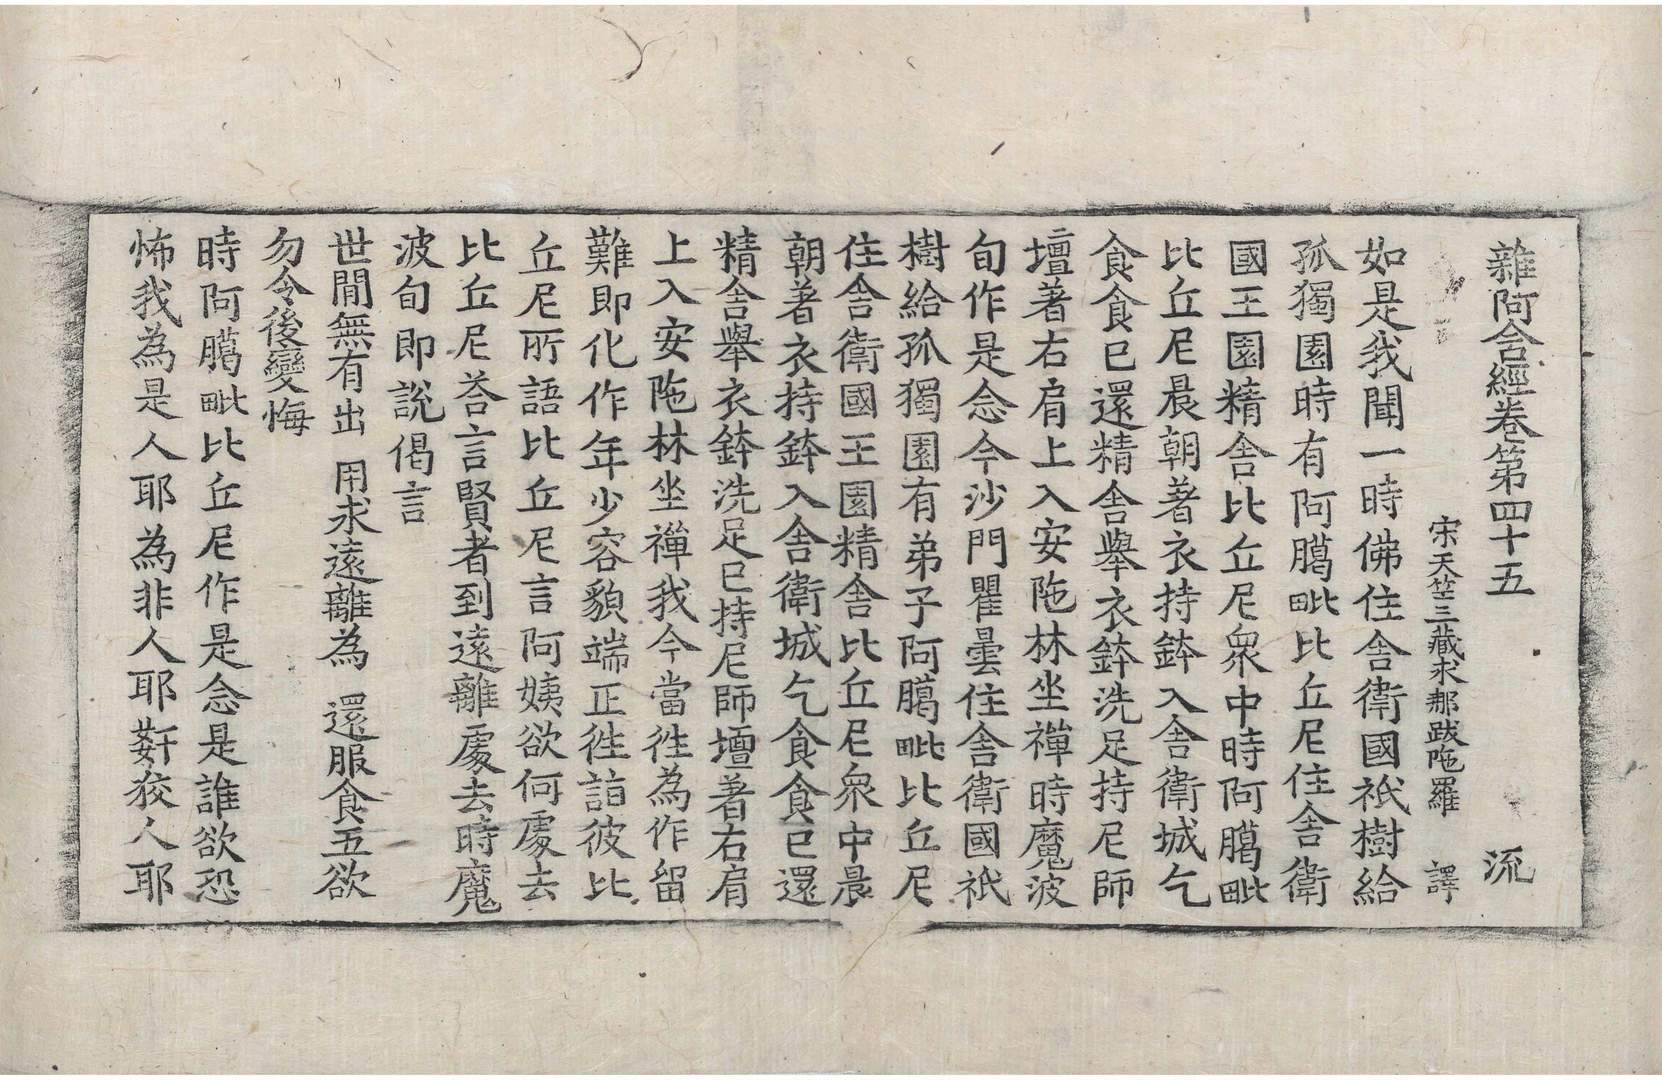 雜阿含經卷第四十五 流
宋天竺三藏求那跋陁羅 譯
如是我聞一時佛住舍衛國祇樹給
孤獨園時有阿臈毗比丘尼住舍衛
國王園精舍比丘尼衆中時阿臈毗
比丘尼晨朝著衣持鉢入舍衛城乞
食食已還精舍舉衣鉢洗足持尼師
壇著右肩上入安陁林坐禪時魔波
旬作是念今沙門瞿曇住舍衛國祇
樹給孤獨園有弟子阿臈毗比丘尼
住舍衛國王園精舍比丘尼衆中晨
朝著衣持鉢入舍衛城乞食食已還
精舍舉衣鉢洗足已持尼師壇著右肩
上入安陁林坐禪我今當徃為作留
難即化作年少容貌端正徃詣彼比
丘尼所語比丘尼言阿姨欲何處去
比丘尼荅言賢者到遠離處去時魔
波旬即說偈言
世閒無有出 用求遠離為 還服食五欲
勿令後變悔
時阿臈毗比丘尼作是念是誰欲恐
怖我為是人耶為非人耶姧狡人耶